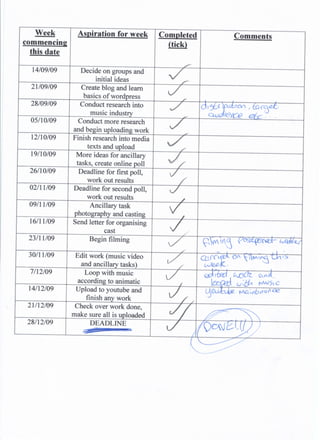 Week commencing this date | Aspiration for week | Completed (tick) | Comments
14/09/09 | Decide on groups and initial ideas | ✓
21/09/09 | Create blog and learn basics of wordpress | ✓
28/09/09 | Conduct research into music industry | ✓ | distribution, target audience etc
05/10/09 | Conduct more research and begin uploading work | ✓
12/10/09 | Finish research into media texts and upload | ✓
19/10/09 | More ideas for ancillary tasks, create online poll | ✓
26/10/09 | Deadline for first poll, work out results | ✓
02/11/09 | Deadline for second poll, work out results | ✓
09/11/09 | Ancillary task photography and casting | ✓
16/11/09 | Send letter for organising cast | ✓
23/11/09 | Begin filming | filming postponed
30/11/09 | Edit work (music video and ancillary tasks) | ✓ | carried on filming this week
7/12/09 | Loop with music according to animatic | ✓ | edited work and looped with music
14/12/09 | Upload to youtube and finish any work | ✓ | youtube maintenance
21/12/09 | Check over work done, make sure all is uploaded | ✓
28/12/09 | DEADLINE | ✓ | DONE!!!